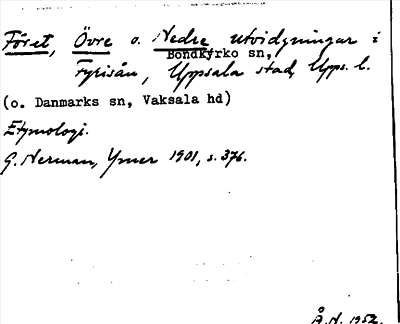 Föret, Övre o. Nedre utvidgningar i
Bondkyrko sn,
Fyrisån, Uppsala stad, Upps. l.
(o. Danmarks sn, Vaksala hd)
Etymologi.
G. Nerman, Ymer 1901, s. 376.
Å.N. 1952.